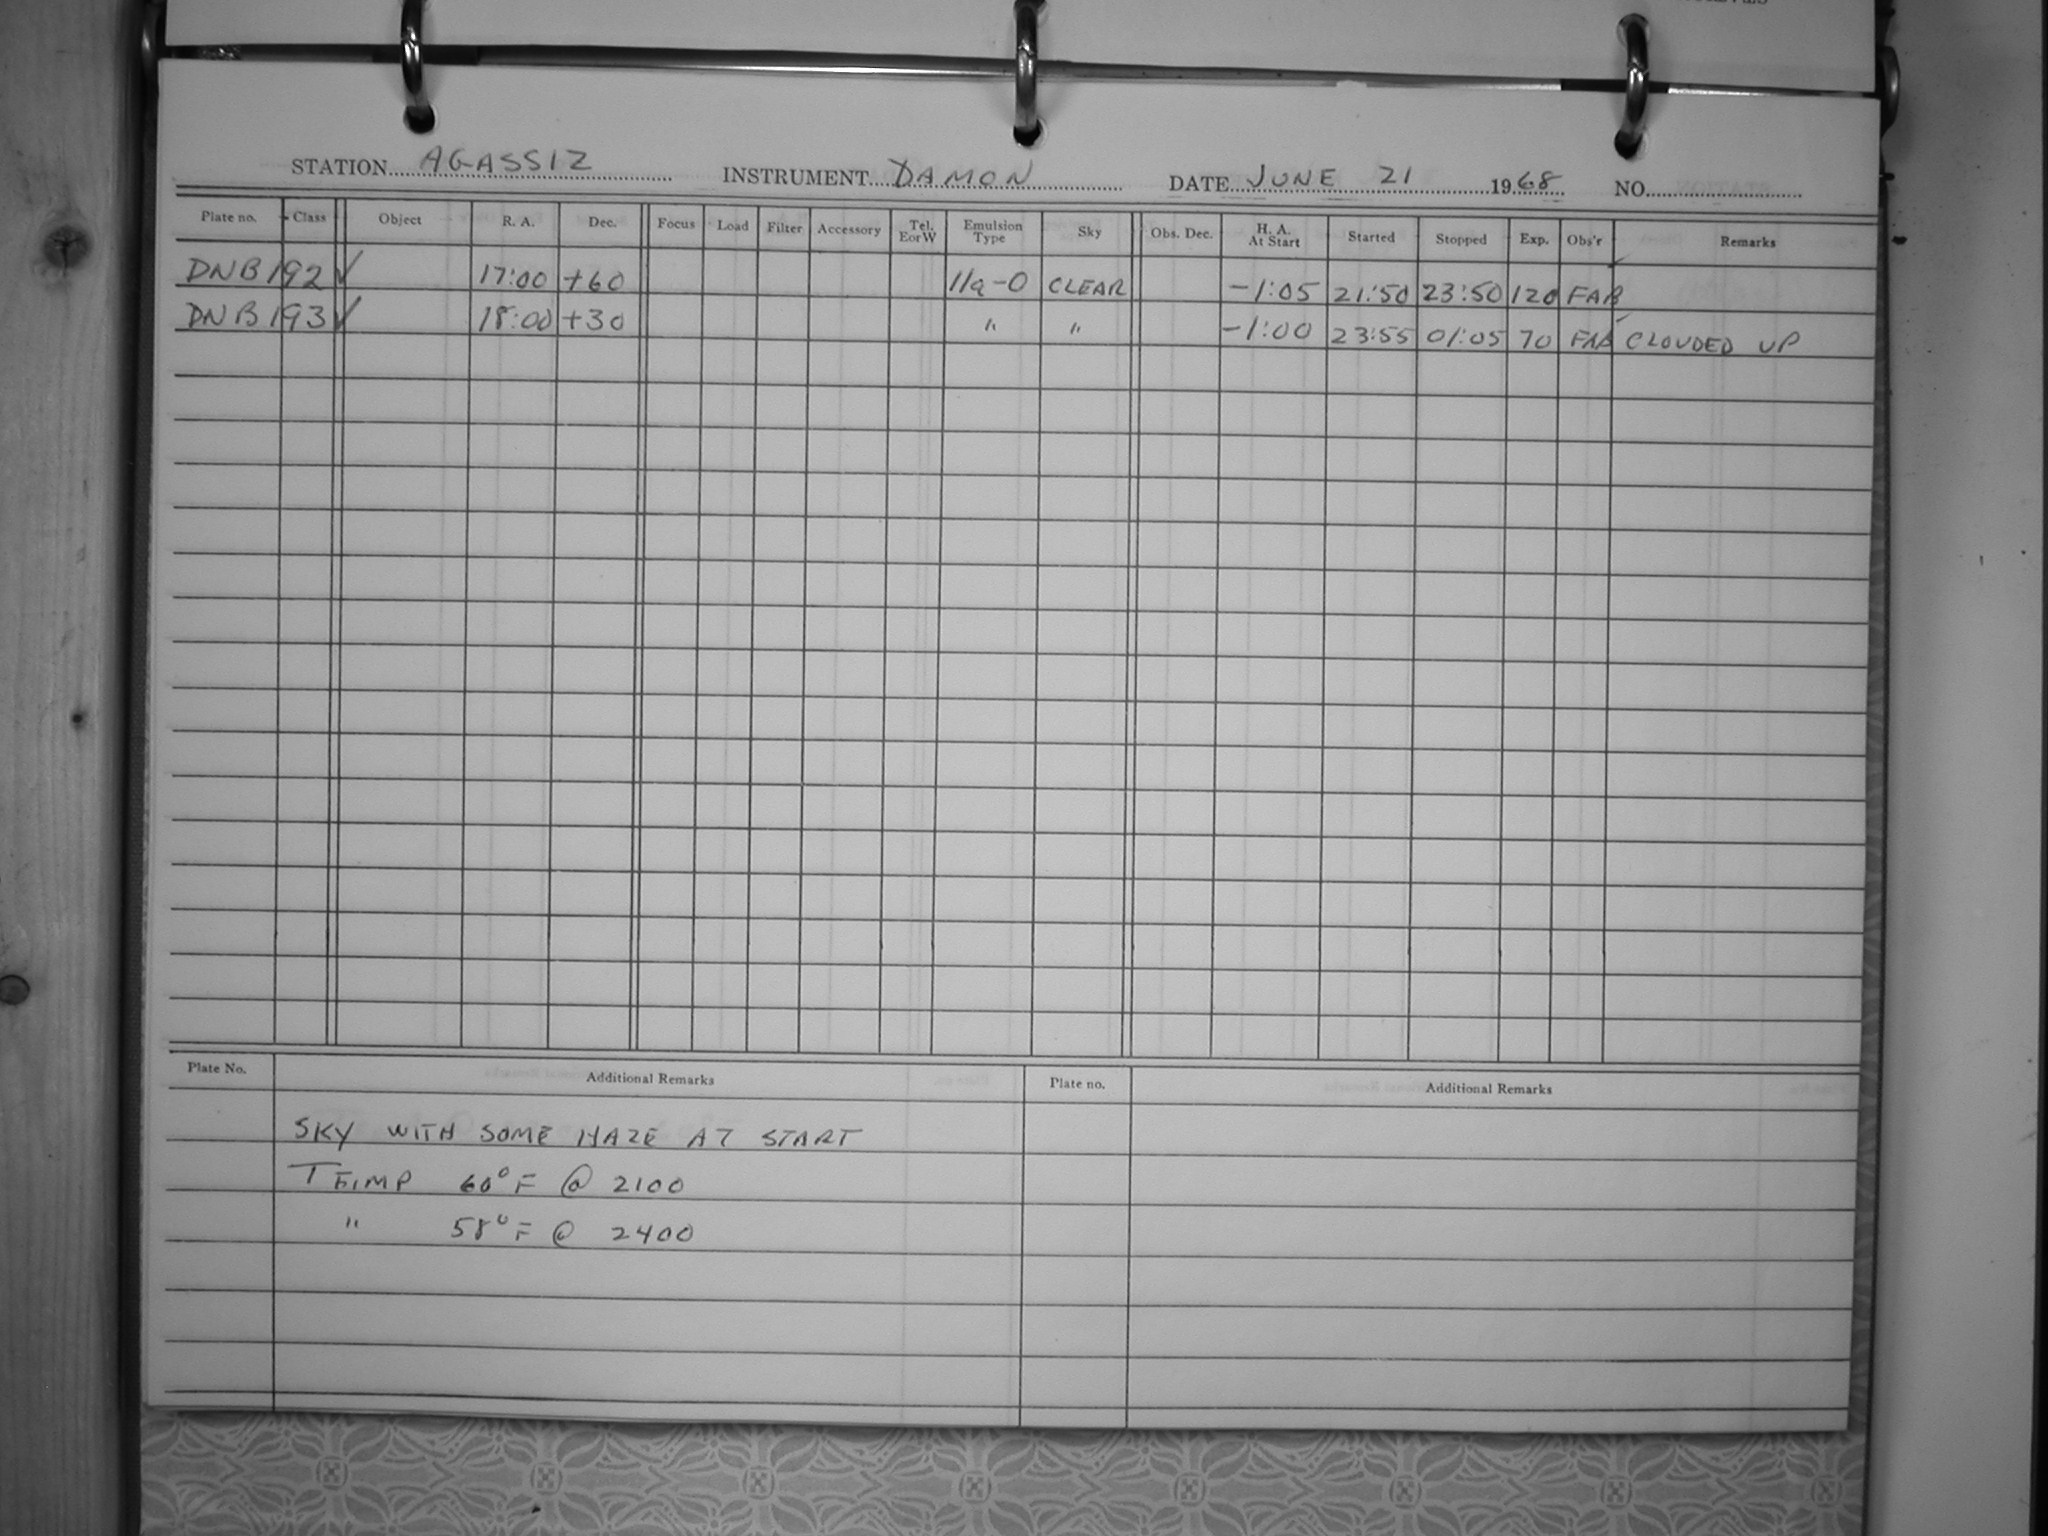 STATION AGASSIZ INSTRUMENT DAMON DATE JUNE 21 1968 NO.
Plate no. Class Object R. A. Dec. Focus Load Filter Accessory Tel. EorW Emulsion Type Sky Obs. Dec. H. A. At Start Started Stopped Exp. Obs'r Remarks
DNB 192 ✓ 17:00 +60 IIa-O CLEAR -1:05 21:50 23:50 120 FAB
DNB 193 ✓ 18:00 +30 " " -1:00 23:55 01:05 70 FAB CLOUDED UP
Plate No. Additional Remarks Plate no. Additional Remarks
SKY WITH SOME HAZE AT START
TEMP 60°F @ 2100
" 58°F @ 2400